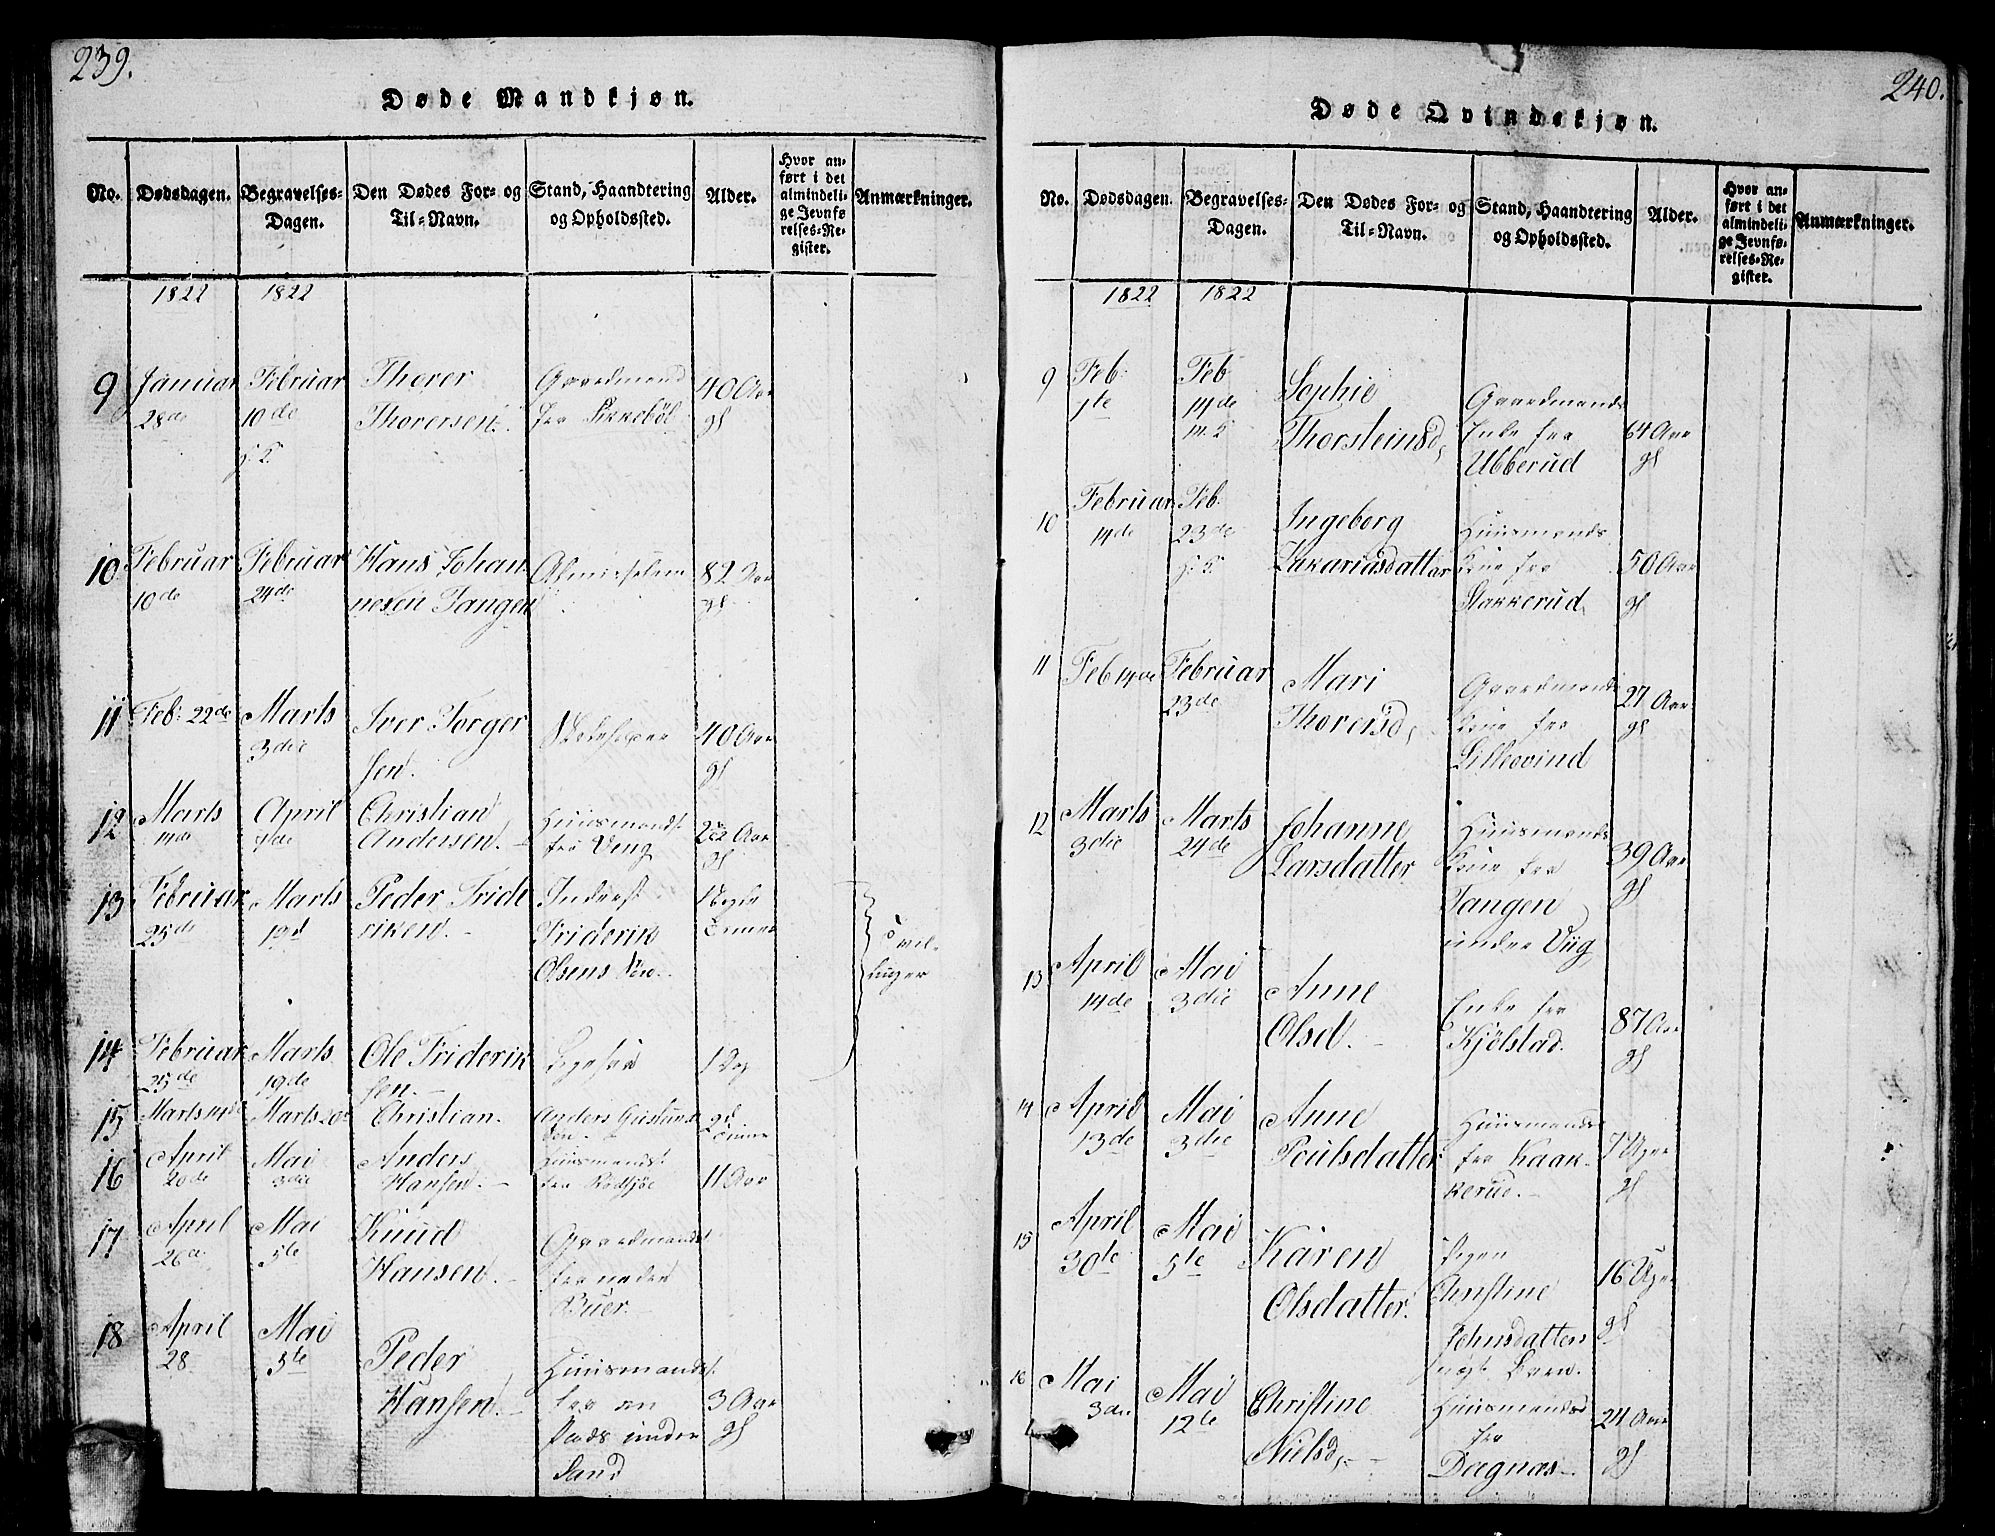 239.
Døde Mandkjøn.
No.
Dødsdagen.
Begravelses-
Dagen.
Den Dødes For- og
Til-Navn.
Stand, Haandtering
og Opholdssted.
Alder.
Hvor an-
ført i det
almindeli-
ge Jevnfø
relses-Re-
gister.
Anmærkninger.
1822
1822
9
Januar
28de
Februar
10de
Thorer
Thorersen.
Gaardmand
fra
40 Aar
gl
10
Februar
10de
Februar
24de
Hans Johan
nesen Tangen
Almisselem
82 Aar
gl.
11
Feb: 22de
Marts
3die
Iver Torger
sen.
40 Aar
gl
12
Marts
14de
April
Christian
Andersen.
Huusmands.
fra
Aar
gl
13
Februar
25de
Marts
19d
Peder Fride
riksen.
Inderst
Friderik
Olsens Søn.
Tvil-
linger
14
Februar
25de
Marts
19de
Ole Friderik
sen.
1 Dag
15
Marts 14de
Marts 20de
Christian.
Anders
16
April
20de
Mai
3die
Anders
Hansen.
Huusmands.
fra
11 Aar
17
April
26d
Mai
5te
Knud
Hansen.
Gaardmands
fra nedre
Buer.
18
April
28
Mai
5te
Peder
Hansen.
Huusmands.
fra en
Plads under
Sand
3 Aar
gl
240.
Døde Qvindekjøn.
No.
Dødsdagen.
Begravelses-
Dagen.
Den Dødes For- og
Til-Navn.
Stand, Haandtering
og Opholdssted.
Alder.
Hvor an-
ført i det
almindeli-
ge Jevnfø-
relses-Re-
gister.
Anmærkninger.
1822
1822
9
Feb:
1te
Feb
14de
Sophie
Thorsteinsd,
Gaardmands
Enke fra
Ubberud
64 Aar
gl
10
Februar
14de
Feb:
23de
Ingeborg
Zakariasdatter
Huusmands
Kone fra
Stakkerud,
50 Aar
gl
11
Feb 14de
Februar
23de
Mari
Thorersd,
Gaardmands
Kone fra
Lilleevind
27 Aar
gl
12
Marts
3die
Marts
24de
Johanne
Larsdatter
Huusmands
Kone fra
Tangen
under Viig
39 Aar
gl
13
April
14de
Mai
3die
Anne
Olsd.
Enke fra
Kjølstad.
87 Aar
gl
14
April
13de
Mai
3die
Anne
Poulsdatter
Huusmands
fra Kaak-
kerud.
7 Uger
gl
15
April
30de
Mai
5te
Karen
Olsdatter.
Pigen
Christine
Johnsdatters
16 Uger
gl
16
Mai
3die
Mai
12te
Christine
Nielsd,
Huusmandsd
fra
Dagnæs
24 Aar
gl